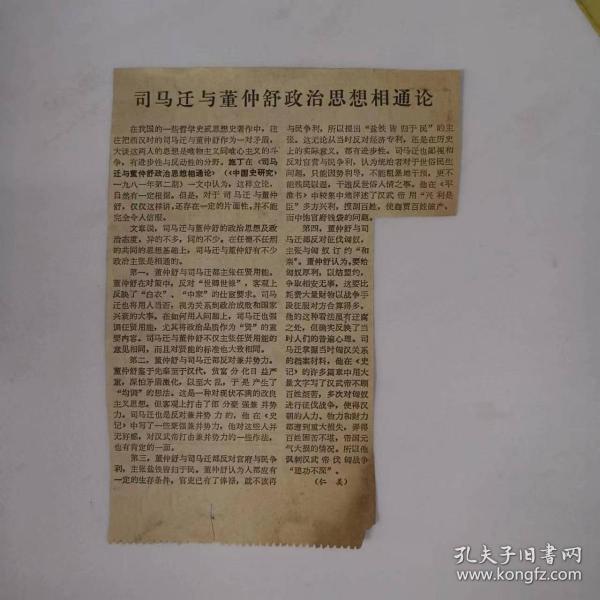 司马迁与董仲舒政治思想相通论
在我国的一些哲学史或思想史著作中，往
往把西汉时的司马迁与董仲舒作为一对矛盾，
大谈这两人的思想是唯物主义同唯心主义的斗
争，有进步性与反动性的分野。施丁在《司马
迁与董仲舒政治思想相通论》（《中国史研究》
一九八一年第二期）一文中认为，这样立论，
自然有一定根据。但是，对于司马迁与董仲
舒，仅仅这样讲，还存在一定的片面性，并不能
完全令人信服。
文章说，司马迁与董仲舒的政治思想及政
治态度，异的不多，同的不少。在任德不任刑
的共同的思想基础上，司马迁与董仲舒有不少
政治主张是相通的。
第一，董仲舒与司马迁都主张任贤用能。
董仲舒在对策中，反对“世卿世禄”，客观上
反映了“白衣”、“中家”的仕宦要求。司马
迁也将用人当否，视为关系到政治成败和国家
兴衰的大事。在如何用人问题上，司马迁也强
调任贤用能，尤其将政治品质作为“贤”的重
要内容。司马迁与董仲舒不仅主张任贤用能的
意见相同，而且对贤能的标准也大致相同。
第二，董仲舒与司马迁都反对兼并势力。
董仲舒鉴于先秦至于汉代，贫富分化日益严
重，深怕矛盾激化，以至大乱，于是产生了
“均调”的想法。这是一种对现状不满的改良
主义思想。但客观上打击了部分豪强兼并势
力。司马迁也是反对兼并势力的，他在《史
记》中写了一些豪强兼并势力，他对这些人并
无好感，对汉武帝打击兼并势力的一些作法，
也有肯定的一面。
第三，董仲舒与司马迁都反对官府与民争
利，主张盐铁皆归于民。董仲舒认为人都应有
一定的生存条件，官吏已有了俸禄，就不该再
与民争利，所以提出“盐铁皆归于民”的主
张。这无论从当时反对经济专利，还是在历史
上的实际意义，都有进步性。司马迁也鄙视和
反对官营与民争利，认为统治者对于世俗民生
问题，只能因势利导，不能粗暴地干预，更不
能残民以逞，干违反世俗人情之事。他在《平
准书》中较集中地评述了汉武帝用“兴利是
臣”多方兴利，搜刮百姓，使商贾百姓破产，
而中饱官府钱袋的问题。
第四，董仲舒与司
马迁都反对征伐匈奴，
主张与匈奴订约“和
亲”。董仲舒认为，要给
匈奴厚利，以结盟约，
争取相安无事，这要比
耗费大量财物以战争手
段征服对方合算得多。
他的这种看法虽有迂腐
之处，但确实反映了当
时人们的普遍心理。司
马迁掌握当时匈汉关系
的档案材料，他在《史
记》的许多篇章中用大
量文字写了汉武帝不顾
百姓疾苦，多次对匈奴
进行征伐战争，使得汉
朝的人力、物力和财力
都遭到重大损失，弄得
百姓困苦不堪，帝国元
气大损的情况。所以他
讽刺汉武帝伐匈战争
“建功不深”。
（仁美）
孔夫子旧书网
www.kongfz.com